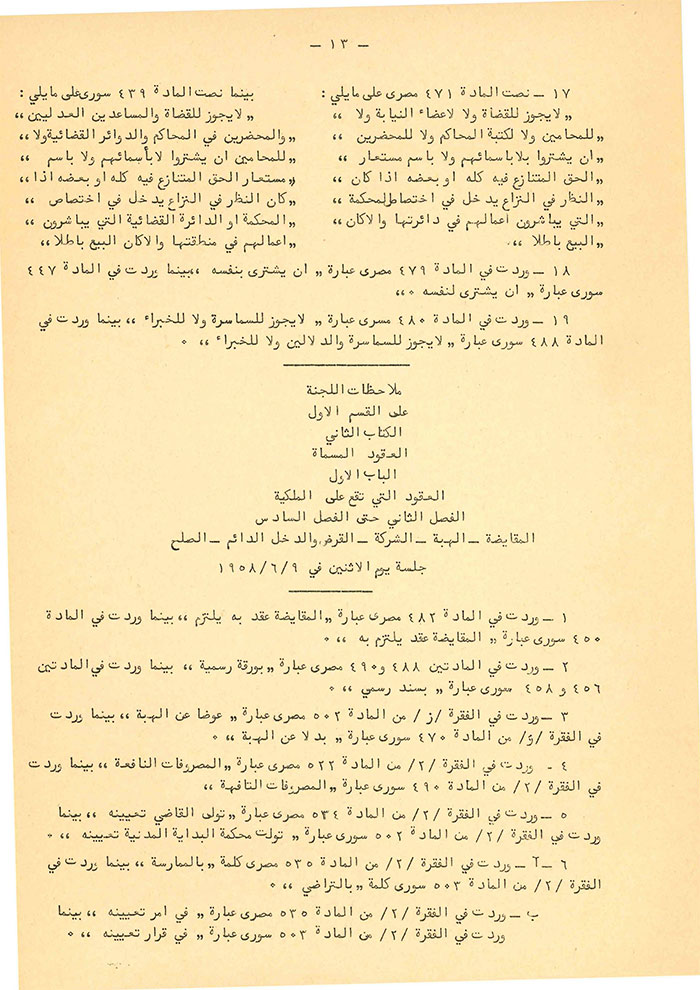 ـ ١٣ ـ
١٧ ـ نصت المادة ٤٧١ مصرى على مايلي :
„ لايجوز للقضاة ولا لاعضاء النيابة ولا „
„ للمحامين ولا لكتبة المحاكم ولا للمحضرين „
„ ان يشتروا بلاباسمائهم ولا باسم مستعار „
„ الحق المتنازع فيه كله او بعضه اذا كان „
„ النظر في النزاع يدخل في اختصاص المحكمة „
„ التي يباشرون اعمالهم في دائرتها والاكان „
„ البيع باطلا „.
بينما نصت المادة ٤٣٩ سورى على مايلي :
„ لايجوز للقضاة والمساعدين العدليين „
„ والمحضرين في المحاكم والدوائر القضائية ولا „
„ للمحامين ان يشتروا لابأسمائهم ولا باسم „
„ مستعار الحق المتنازع فيه كله او بعضه اذا „
„ كان النظر في النزاع يدخل في اختصاص „
„ المحكمة او الدائرة القضائية التي يباشرون „
„ اعمالهم في منطقتها والاكان البيع باطلا „
١٨ ـ وردت في المادة ٤٧٩ مصرى عبارة „ ان يشترى بنفسه „ بينما وردت في المادة ٤٤٧
سورى عبارة „ ان يشترى لنفسه „ ٠
١٩ ـ وردت في المادة ٤٨٠ مسرى عبارة „ لايجوز للسماسرة ولا للخبراء „ بينما وردت في
المادة ٤٨٨ سورى عبارة „ لايجوز للسماسرة والدلالين ولا للخبراء „ ٠
ملاحظات اللجنة
على القسم الاول
الكتاب الثاني
العقود المسماة
الباب الاول
العقود التي تقع على الملكية
الفصل الثاني حتى الفصل السادس
المقايضة ـ الهبة ـ الشركة ـ القرض والدخل الدائم ـ الصلح
جلسة يوم الاثنين في ١٩٥٨/٦/٩
١ ـ وردت في المادة ٤٨٢ مصرى عبارة „ المقايضة عقد به يلتزم „ بينما وردت في المادة
٤٥٠ سورى عبارة „ المقايضة عقد يلتزم به „ ٠
٢ ـ وردت في المادتين ٤٨٨ و ٤٩٠ مصرى عبارة „ بورقة رسمية „ بينما وردت في المادتين
٤٥٦ و ٤٥٨ سورى عبارة „ بسند رسمي „ ٠
٣ ـ وردت في الفقرة /ز/ من المادة ٥٠٢ مصرى عبارة „ عوضا عن الهبة „ بينما وردت
في الفقرة /و/ من المادة ٤٧٠ سورى عبارة „ بدلا عن الهبة „ ٠
٤ ـ وردت في الفقرة /٢/ من المادة ٥٢٢ مصرى عبارة „ المصروفات النافعة „ بينما وردت
في الفقرة /٢/ من المادة ٤٩٠ سورى عبارة „ المصروفات التافهة „
٥ ـ وردت في الفقرة /٢/ من المادة ٥٣٤ مصرى عبارة „ تولى القاضي تعيينه „ بينما
وردت في الفقرة /٢/ من المادة ٥٠٢ سورى عبارة „ تولت محكمة البداية المدنية تعيينه „ ٠
٦ ـ آ ـ وردت في الفقرة /٢/ من المادة ٥٣٥ مصرى كلمة „ بالممارسة „ بينما وردت في
الفقرة /٢/ من المادة ٥٠٣ سورى كلمة „ بالتراضي „ ٠
ب ـ وردت في الفقرة /٢/ من المادة ٥٣٥ مصرى عبارة „ في امر تعيينه „ بينما
وردت في الفقرة /٢/ من المادة ٥٠٣ سورى عبارة „ في قرار تعيينه „ ٠